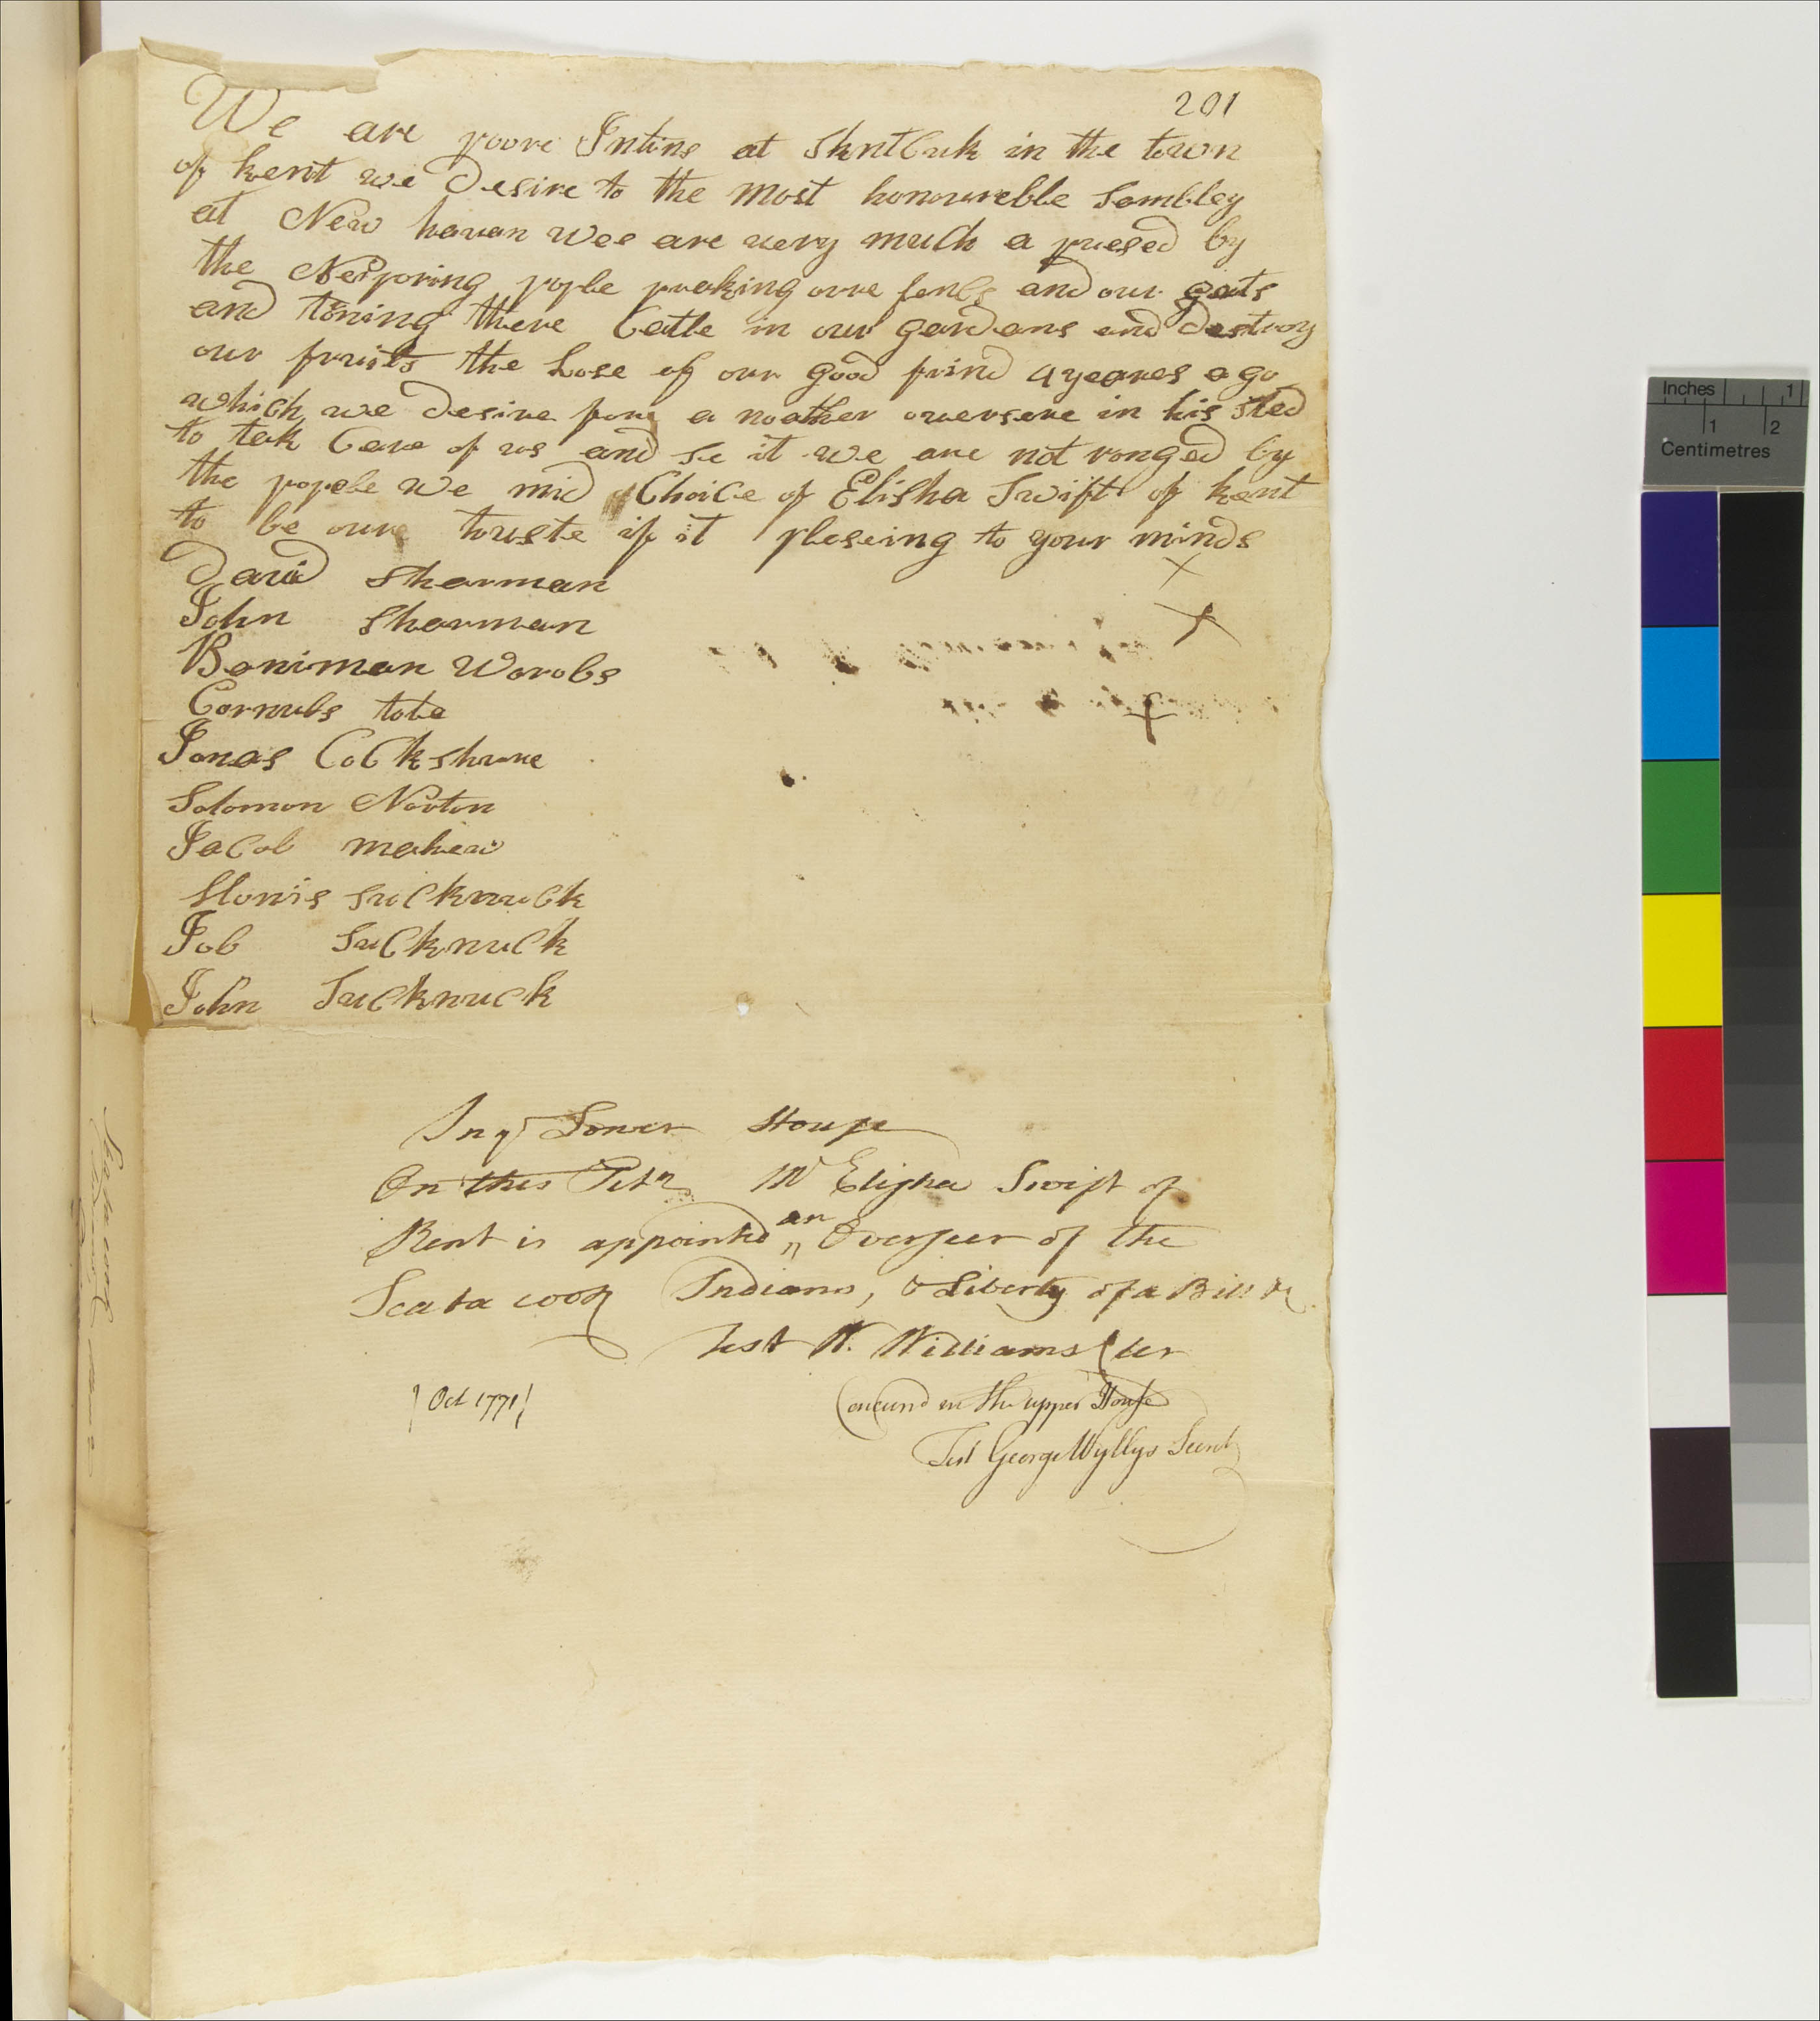 201
We are poore Intins at SkntCuk in the town
of kent we Desire to the most honourebble Sembley
at New havan wee are very much a presed by
the Neiporing pople preking oure fencs and our gats
and toning there Catle in our gardens and Destroy
our fruits the Lose of our good frind 4 yeares ago
which we desire for a noather oversere in his sted
to tak Care of us and se it we are not ronged by
the popele we mid Choice of Elisha Swift of kent
to be oure truste if it pleseing to your minds
David Sharman
John Sharman
Beniman Worobs
Cornubs tobe
Jonas Cockshure
Solomon Norten
Jacob mahew
Honis Sucknuck
Job Sucknuck
John Sucknuck
In ye Lower House
On this Petn Mr Elisha Swift of
Kent is appointed an Overseer of the
Scatacook Indians, & Liberty of a Bill &c
Test W. Williams Cler
[Oct 1771]
Concurrd in the upper House
Test George Wyllys Secrety
Inches 1
1 2
Centimetres